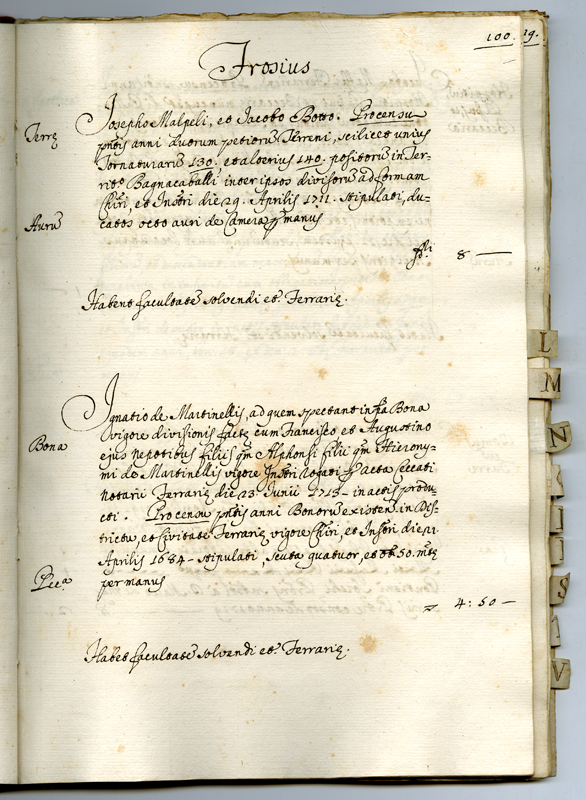 100. 29.
Frosius
Josepho Malpeli, et Jacobo Botto. Pro censu
Terrę
pñtis anni duorum petioru Terreni, scilicet unius
Tornaturiaru 130. et alterius 140. positoru in Ter-
rito Bagnacaballi inter ipsos divisoru ad formam
Chiri, et Instri die 29. Aprilis 1711. stipulati, du-
Auru
catos octo auri de Camera p manus
8 —
Habent facultate solvendi et Ferrarię.
Ignatio de Martinellis, ad quem spectant infra Bona
vigore divisionis factę cum Francisco et Augustino
Bona
ejus nepotibus filiis qm Alphonsi filii qm Hierony-
mi de Martinellis vigore Instri Rogati p acta Ceccati
Notarii Ferrarię die 23 Junii 1713 - in actis produ-
cti. Pro censu pñtis anni Bonoru existen. in Dis-
trictu, et Civitate Ferrarię vigore Chiri, et Instri die
Aprilis 1684 - stipulati, scuta quatuor, et 50. mtę
per manus
4: 50 —
Habet facultate solvendi et Ferrarię.
L
M
N
S
V